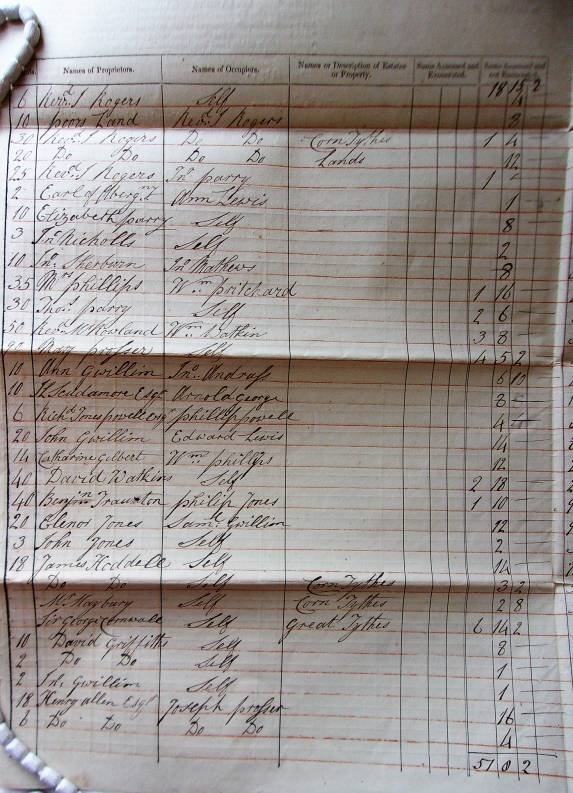 Names of Proprietors. Names of Occupiers. Names or Description of Estates or Property. Sums Assessed and Exonerated. Sums Assessed and not Exonerated.
18 15 2
6 Revd. J Rogers Self 4
10 poors Land Revd. J Rogers 8
30 Revd. J Rogers Do Do Corn Tythes 1 4
20 Do Do Do Do Lands 12
25 Revd. J Rogers Jno. parry 1
2 Earl of Ann Lewis 1
10 Elizabeth parry Self 8
3 Jno Nicholls Self 2
10 Jno. Sherburn Jno. Mathews 8
35 Mrs phillips Wm pritchard 1 16
30 Thos. parry Self 2 6
50 Revd. W Rowland Wm Watkin 3 8
prosser Self 4 5 2
10 Ann Gwillim Jno. Andrass 6 10
10 Scudamore Esqr Arnold George 8
6 Richd Jones powell Esqr phillip powell 4
20 John Gwillim Edward Lewis 14
14 Catharine Gilbert Wm phillips 12
40 David Watkins Self 2 18
40 Benjn Traunton philip Jones 1 10
20 Elenor Jones Saml. Gwillim 12
3 John Jones Self 2
18 James Hoddell Self 14
Do Do Self Corn Tythes 3 2
Mr Haybury Self Corn Tythes 2 8
Sir George Cornwall Self Great Tythes 6 14 2
10 David Griffiths Self 8
2 Do Do Self 1
2 Jno. Gwillim Self 1
18 Henry allen Esqr Joseph prosser 16
6 Do Do Do Do 4
51 0 2